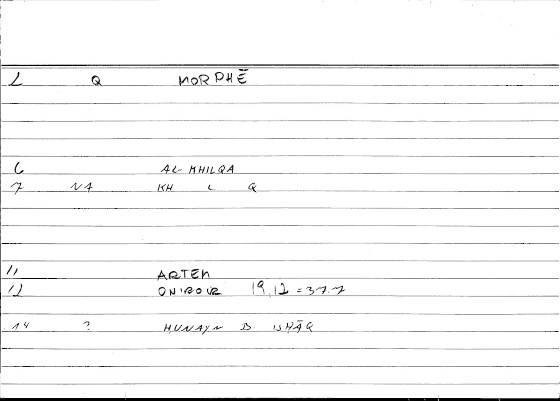 L Q MORPHĒ
6 AL-KHILQA
7 NA KH L Q
11 ARTEM
12 ONIROUR 19,12 = 37.7
14 ? HUNAYN B. ISHĀQ